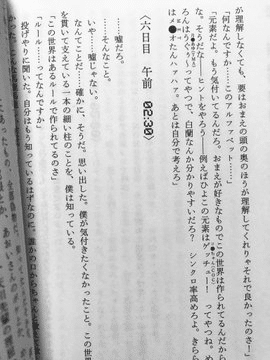 が理解しなくても、要はおまえの頭の奥のほうが理解してくれりゃそれで良かったのさ！」
「何なんですか……このアルファベット……」
「元素だよ。もう気付いてるんだろ。おまえが好きなもんでこの世界は作られてるんだから
な。そうだな――ヒントをやろう――例えばひよこの元素はゲッチュー！ってやつね。
ろんはうってやつで、白蘭なんか分かりやすいだろ？　シンクロ率高めろよ。きらら
は●●オ●たんハァハァ。あとは自分で考えろ」
〈六日目　午前　02:30〉
……嘘だろ。
……そんなこと。
いや……嘘じゃない。
なんてことだ……確かに、そうだ。思い出した。僕が気付きたくなかったこと。この世
を貫いて支えている一本の細い柱のことを、僕は知っている。
「この世界はあるルールで作られてるのさ」
「ルール……ってなんですか」
投げやりに聞いた。自分はもう知っているはずなのに、誰かの口から